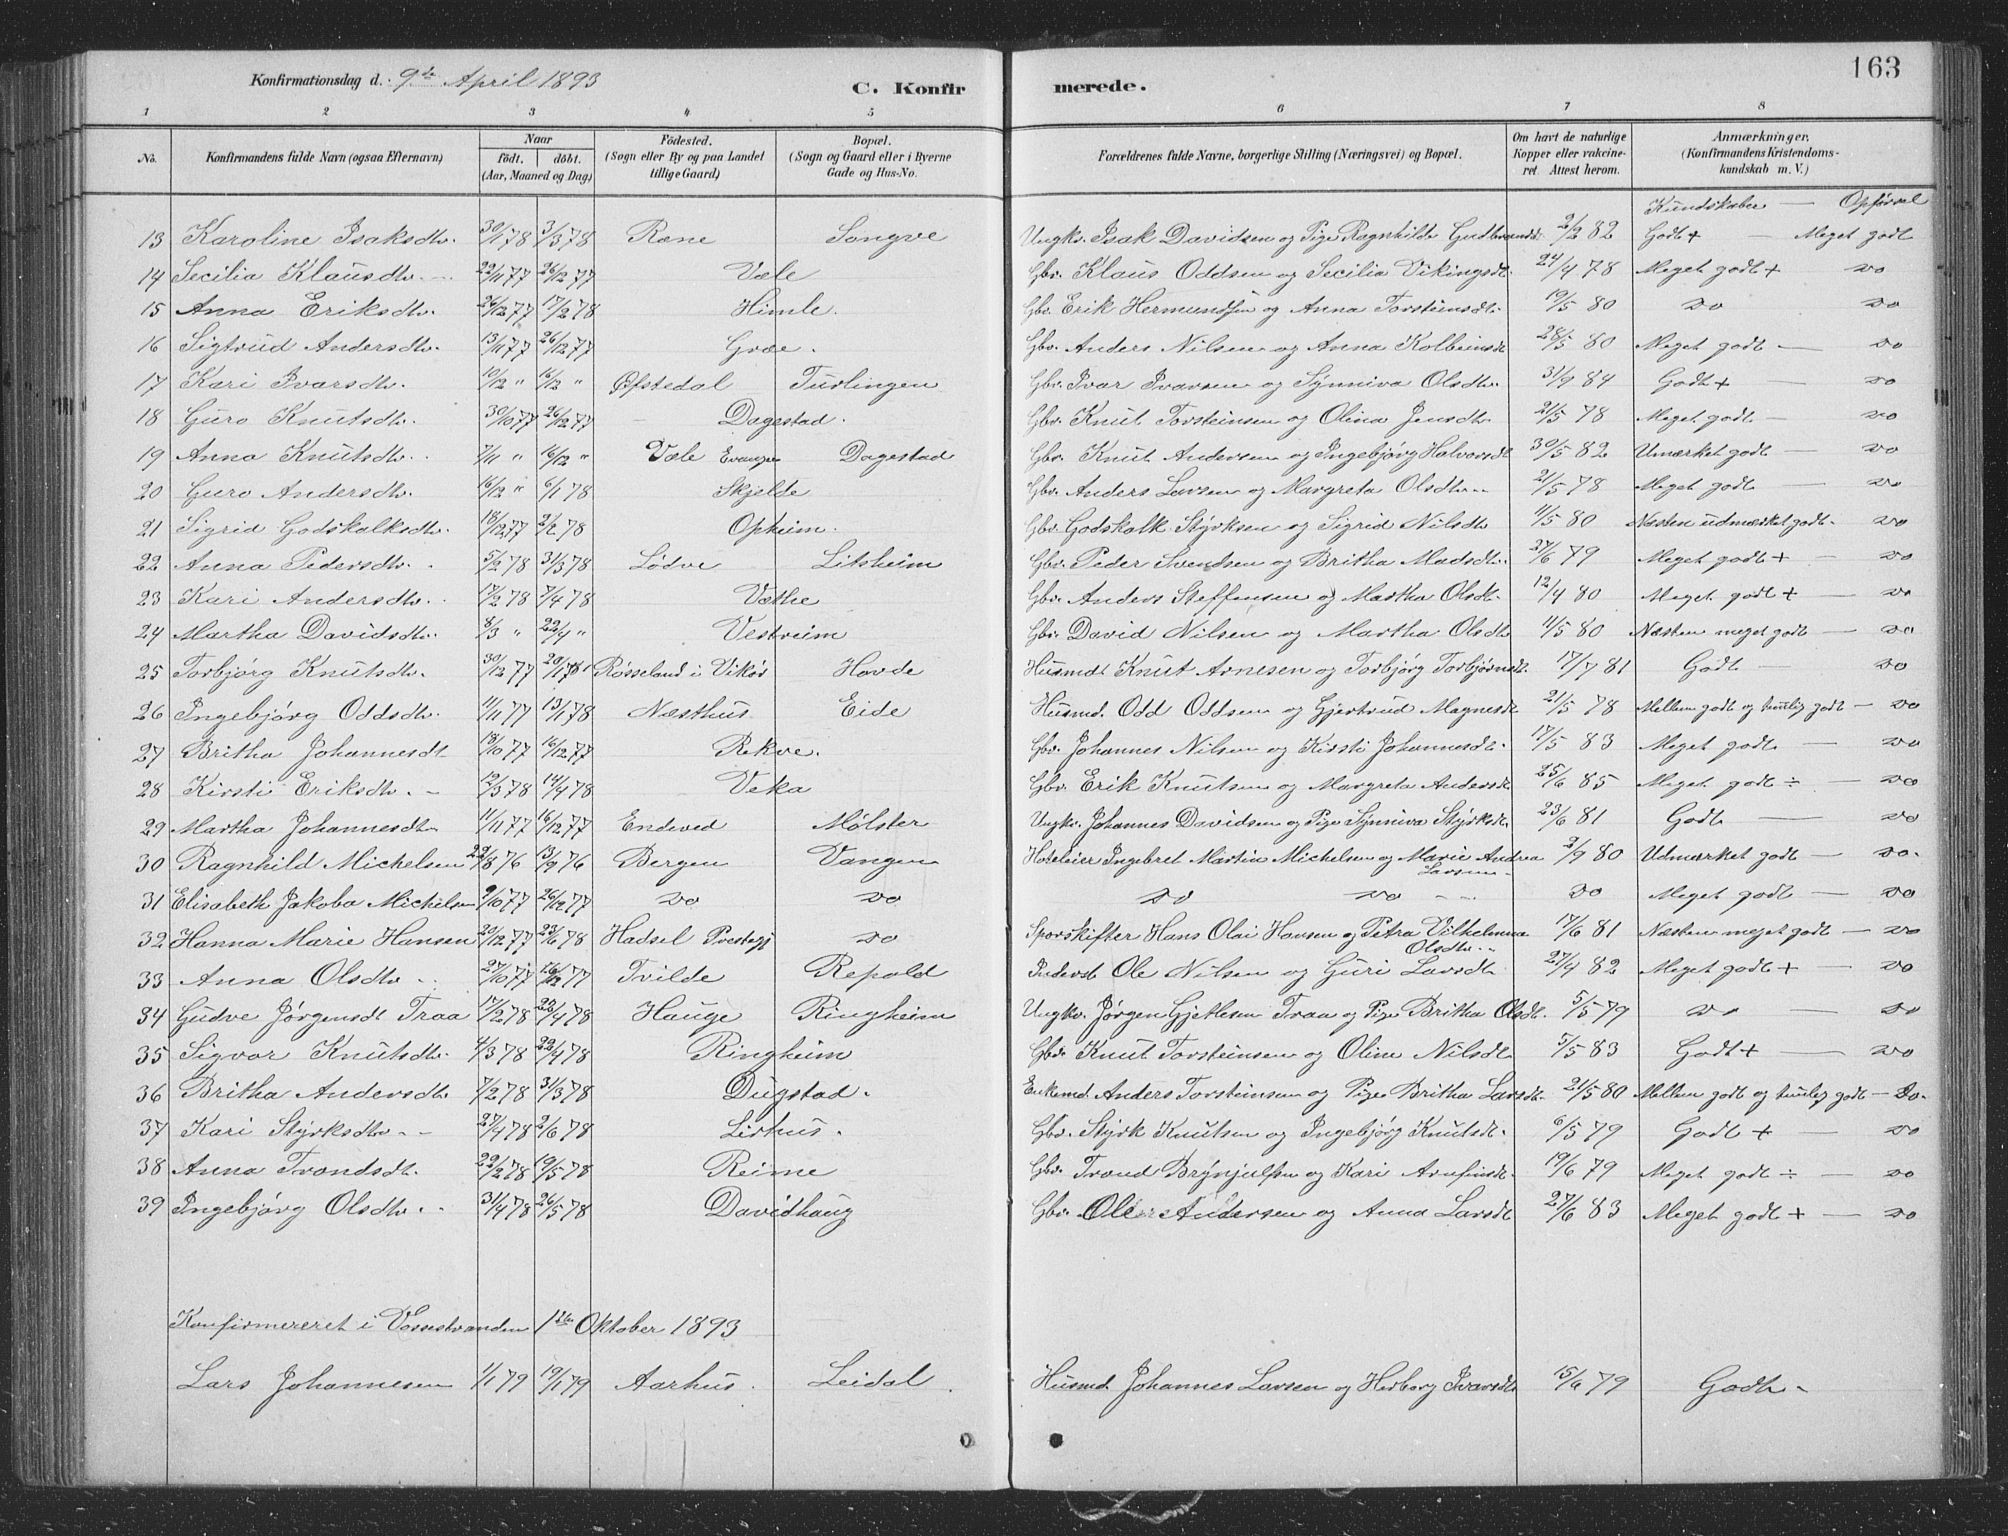 163
Konfirmationsdag d. 9de April 1893
C. Konfirmerede.
1 2 3 4 5 6 7 8
No. | Konfirmandens fulde Navn (ogsaa Efternavn) | Naar født. døbt. (Aar, Maaned og Dag) | Fødested. (Sogn eller By og paa Landet tillige Gaard) | Bopæl. (Sogn og Gaard eller i Byerne Gade og Hus-No. | Forældrenes fulde Navne, borgerlige Stilling (Næringsvei) og Bopæl. | Om havt de naturlige Kopper eller vakcineret. Attest herom. | Anmærkninger. (Konfirmandens Kristendomskundskab m. V.)
Kundskaber — Opførsel
13 Karoline Isaksdtr. 30/1 78 3/3 78 Rene Songve Ungkv. Isak Davidsen og Pige Ragnhilde Gudbrandsd. 2/2 82 Godt + — Meget godt
14 Secilia Klausdtr. 22/11 77 26/12 77 Væle Gbr. Klaus Oddsen og Secilia Vikingsdt. 24/4 78 Meget godt + do
15 Anna Eriksdtr. 26/12 77 17/2 78 Himle. Gbr. Erik Hermundsen og Anna Torsteinsdt. 19/5 80 do do
16 Sigtrud Andersdtr. 13/11 77 26/12 77 Græe. Gbr. Anders Nilsen og Anna Kolbeinsdt 28/5 80 Meget godt — do
17 Kari Ivarsdtr. 10/12 " 16/12 " Øfstedal Turlingen Gbr. Ivar Ivarsen og Synniva Olsdtr. 31/9 84 Godt + — do
18 Guro Knutsdtr. 30/10 77 26/12 77 Dagestad. Gbr. Knut Torsteinsen og Olina Jensdtr. 21/5 78 Meget godt — do
19 Anna Knutsdtr. 7/11 " 16/12 " Væle Evanger Dagestad Gbr. Knut Andersen og Ingebjørg Halvorsdt 30/5 82 Umærket godt — do
20 Guro Andersdtr. 16/12 " 6/1 78 Skjelde Gbr. Anders Larsen og Margreta Olsdtr. 21/5 78 Meget godt — do
21 Sigrid Godskalksdtr. 18/12 77 2/2 78 Opheim. Gbr. Godskalk Styrksen og Sigrid Nilsdtr 11/5 80 Næsten udmærket godt. — do
22 Anna Pedersdtr. 5/2 78 31/3 78 Lødve Litsheim Gbr. Peder Svendsen og Britha Madsdtr. 27/6 79 Meget godt + — do
23 Kari Andersdtr. 17/2 78 7/4 78 Væthe Gbr. Anders Steffensen og Martha Olsdt. 12/4 80 Meget godt + — do
24 Martha Davidsdtr. 8/3 " 22/4 " Vestreim Gbr. David Nilsen og Martha Olsdtr 11/5 80 Næsten meget godt — do
25 Torbjørg Knutsdtr. 30/12 77 20/1 78 Røsseland i Vikør Hovde Husmd. Knut Arnesen og Torbjørg Torbjørnsdt. 17/7 81 Godt — do
26 Ingebjørg Oddsdtr. 11/11 77 13/1 78 Næsthus Eide Husmd. Odd Oddsen og Gjertrud Magnesdt 21/5 78 Mellem godt og temlig godt — do
27 Britha Johannesdt 18/10 77 16/12 77 Rekve. Gbr. Johannes Nilsen og Kirsti Johannesdt. 17/5 83 Meget godt. — do
28 Kirsti Eriksdtr. 12/3 78 14/4 78 Veka Gbr. Erik Knutsen og Margreta Andersdt 25/6 85 Meget godt ÷ — do
29 Martha Johannesdtr 11/11 77 16/12 77 Endeved Mølster Ungkv. Johannes Davidsen og Pige Synniva Styrksdt. 23/6 81 Godt — do
30 Ragnhild Michelsen 22/8 76 13/9 76 Bergen Vangen Hoteleier Ingebret Martin Michelsen og Marie Andrea Larsen 2/9 80 Udmærket godt — do.
31 Elisabeth Jakoba Michelsen 9/10 77 26/12 77 do do do do do Meget godt — do
32 Hanna Marie Hansen 20/12 77 23/6 78 Hadsel Prestegj do Sporskifter Hans Olai Hansen og Petra Vilhelmina Olsdtr. 17/6 81 Næsten meget godt — do
33 Anna Olsdtr. 27/10 77 16/12 77 Tvilde Repald Inderst Ole Nilsen og Guri Larsdt. 27/9 82 Meget godt + — do
34 Gudve Jørgensdt Traa 17/2 78 22/4 78 Hauge Ringheim Ungkv. Jørgen Gjetlesen Traa og Pige Britha Olsdt. 5/5 79 do — do
35 Sigvor Knutsdtr. 4/3 78 22/4 78 Ringheim Gbr. Knut Torsteinsen og Oline Nilsdt. 5/5 83 Godt + — do
36 Britha Andersdtr 7/2 78 31/3 78 Dugstad. Enkemd. Anders Torsteinsen og Pige Britha Larsdt. 21/5 80 Mellem godt og temlig godt — Do.
37 Kari Styrksdtr. 27/4 78 2/6 78 Lirhus. Gbr. Styrk Knutsen og Ingebjørg Knutsdt. 6/5 79 Godt + — do
38 Anna Trondsdt. 22/2 78 19/5 78 Reime Gbr. Trond Brynjulfsen og Kari Arnfinsdt. 19/6 79 Meget godt ÷ — do
39 Ingebjørg Olsdtr. 31/4 78 26/5 78 Davidhaug Gbr. Ole Andersen og Anna Larsdt 27/6 83 Meget godt + — do
Konfirmeret i Vossestranden 1ste Oktober 1893
Lars Johannesen 1/1 79 19/1 79 Aarhus. Leidal. Husmd. Johannes Larsen og Herborg Ivarsdtr 15/6 79 Godt.